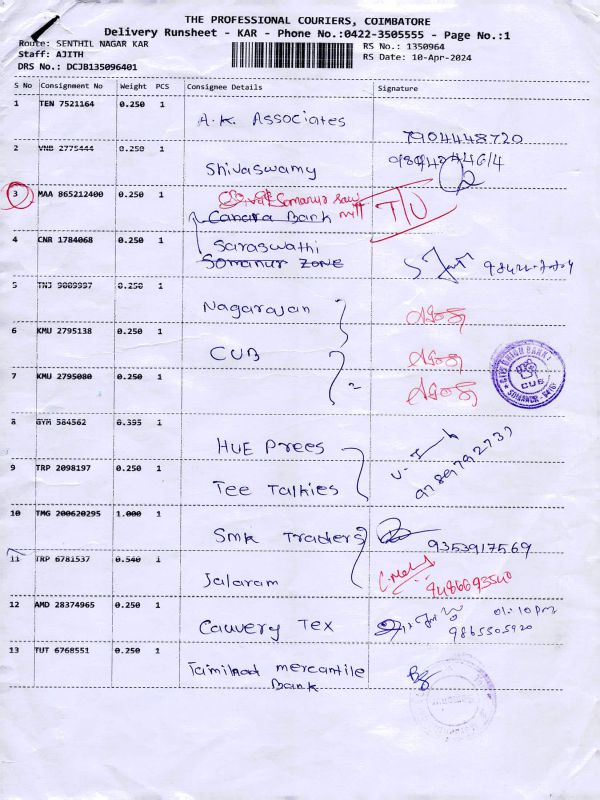 THE PROFESSIONAL COURIERS, COIMBATORE
Delivery Runsheet - KAR - Phone No.:0422-3505555 - Page No.:1
Route: SENTHIL NAGAR KAR
RS No.: 1350964
Staff: AJITH
RS Date: 10-Apr-2024
DRS No.: DCJB135096401
S No Consignment No Weight PCS Consignee Details Signature
1 TEN 7521164 0.250 1 A.K. Associates
7904448720
2 VNB 2775444 0.250 1 Shivaswamy
3 MAA 865212400 0.250 1 Somanur saw mill T/U
Canara Bank
4 CNR 1784068 0.250 1 Saraswathi
Somanur ZONE
5 TNJ 9089997 0.250 1 Nagarajan
6 KMU 2795138 0.250 1 CUB
7 KMU 2795080 0.250 1 2
CUB
8 GYM 584562 0.395 1 HUE Prees
9789792737
9 TRP 2098197 0.250 1 Tee Talhies
10 TMG 200620295 1.000 1 Smk Traders
9353917569
11 TRP 6781537 0.540 1 Jalaram
9486693540
12 AMD 28374965 0.250 1 Cauvery Tex 01:10 Pm
9865505920
13 TUT 6768551 0.250 1 Tamilnad mercantile
Bank